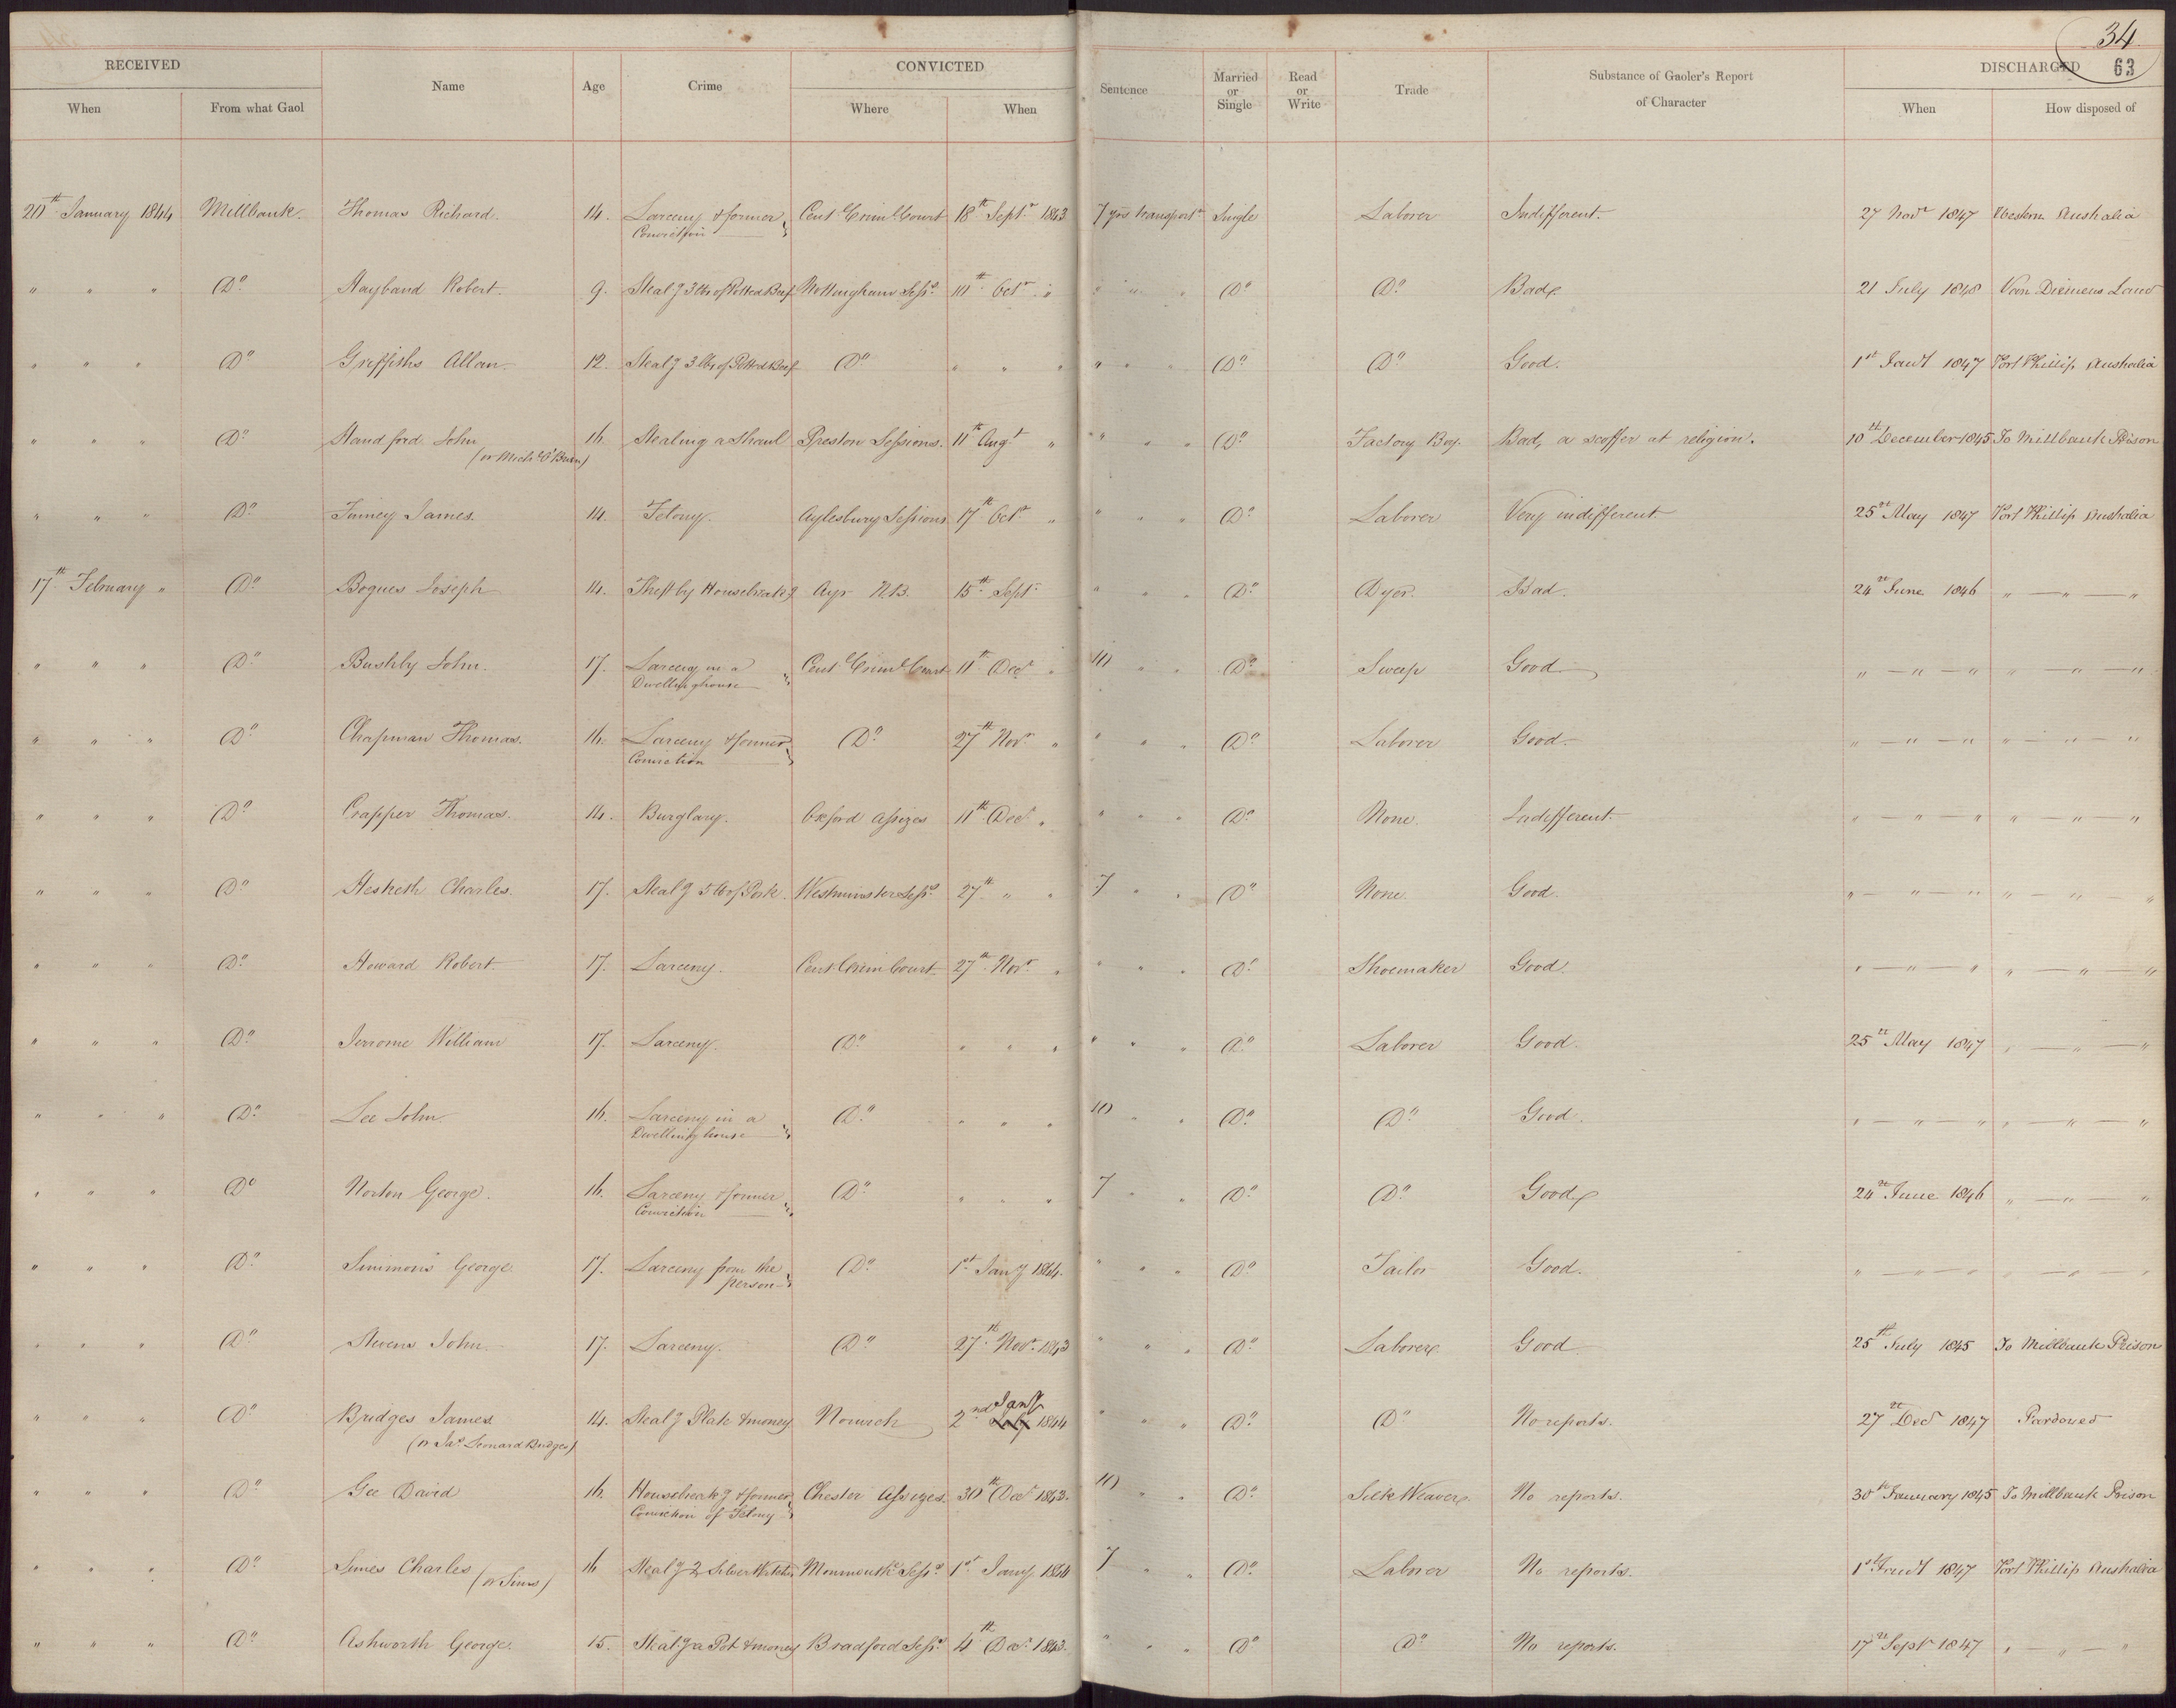 34
63
RECEIVED Name Age Crime CONVICTED Sentence Married or Single Read or Write Trade Substance of Gaoler's Report of Character DISCHARGED
When From what Gaol Where When When How disposed of
20th January 1844 Millbank. Thomas Richard. 14. Larceny & former Conviction Cent. Crim.l Court 18th Septr 1843 7 yrs transportn Single Laborer Indifferent. 27 Novr 1847 Western Australia
" " " Do Hayband Robert. 9. Stealg 3 lbs of Potted Beef Nottingham Sesss 10th Octr " " " " Do Do Bad. 21 July 1848 Van Diemens Land
" " " Do Griffiths Allan. 12. Stealg 3 lbs of Potted Beef Do " " " " " " Do Do Good. 1st Jany 1847 Port Phillip Australia
" " " Do Standford John 16. Stealing a Shawl Preston Sessions. 11th Augt " " " " Do Factory Boy. Bad, a scoffer at religion. 10th December 1845 To Millbank Prison
(or Michl O'Brien)
" " " Do Finney James. 14. Felony. Aylesbury Sessions 17th Octr " " " " Do Laborer Very indifferent 25th May 1847 Port Phillip Australia
17th February " Do Bogues Joseph 14. Theft by Housebreakg Ayr N.B. 15th Sept. " " " Do Dyer. Bad. 24th June 1846 " — " — "
" " " Do Bushby John. 17. Larceny in a Dwellinghouse Cent. Crim.l Court 11th Decr " 10 " " Do Sweep Good " — " — " " — " — "
" " " Do Chapman Thomas. 16. Larceny & former Conviction Do 27th Novr " " " " Do Laborer Good. " — " — " " — " — "
" " " Do Crapper Thomas. 14. Burglary. Oxford Assizes 11th Decr " " " " Do None. Indifferent. " — " — " " — " — "
" " " Do Hesketh Charles. 17. Stealg 5 lb of Pork. Westminster Sesss 27th " " 7 " " Do None. Good. " — " — " " — " — "
" " " Do Howard Robert. 17. Larceny. Cent Crim Court 27th Novr " " " " Do Shoemaker Good. " — " — " " — " — "
" " " Do Jerrome William 17. Larceny. Do " " " " " " Do Laborer Good. 25th May 1847 " — " — "
" " " Do Lee John 16. Larceny in a Dwelling house Do " " " 10 " " Do Do Good. " — " — " " — " — "
" " " Do Norton George. 16. Larceny & former Conviction Do " " " 7 " " Do Do Good 24th June 1846 " — " — "
" " " Do Simmons George 17. Larceny from the person Do 1st Jany 1844. " " " Do Tailor Good. " — " — " " — " — "
" " " Do Stevens John. 17. Larceny. Do 27th Novr 1843 " " " Do Laborer Good 25th July 1845 To Millbank Prison
" " " Do Bridges James 14. Stealg Plate & money Norwich 2nd Jany 1844 " " " Do Do No reports. 27th Decr 1847 Pardoned
(or Jas Leonard Bridges)
" " " Do Gee David 16. Housebreakg & former Conviction of Felony Chester Assizes. 30th Decr 1843. 10 " " Do Silk Weaver. No reports. 30th January 1845 To Millbank Prison
" " " Do Simes Charles (or Sims) 16 Stealg 2 Silver Watches Monmouth Sesss 1st Jany 1844 7 " " Do Laborer No reports. 1st Jany 1847 Port Phillip Australia
" " " Do Ashworth George. 15. Stealg a Pot & money Bradford Sesss 4th Decr 1843. " " " Do Do No reports. 17th Sept 1847 " — " — "